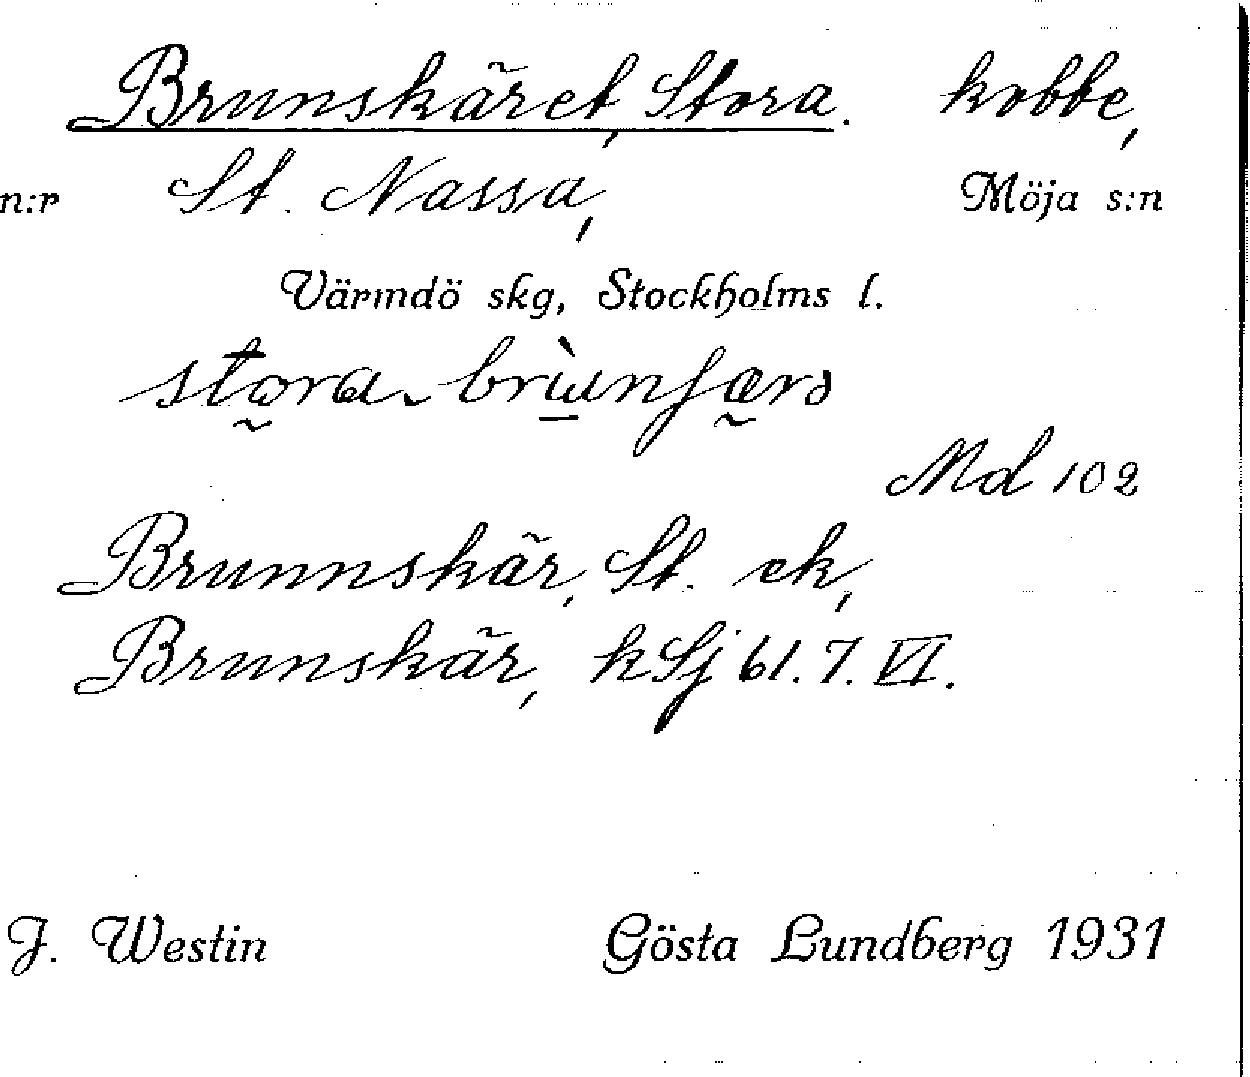 Brunskäret, Stora. kobbe,
n:r St. Nassa, Möja s:n
Värmdö skg, Stockholms l.
Md 102
Brunnskär, St. ek,
Brunskär, k Sj 61. 7. VI.
J. Westin Gösta Lundberg 1931